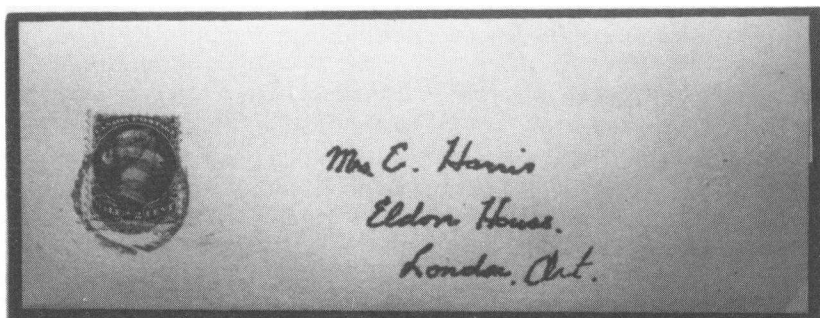 Mrs E. Harris
Eldon House.
London, Ont.